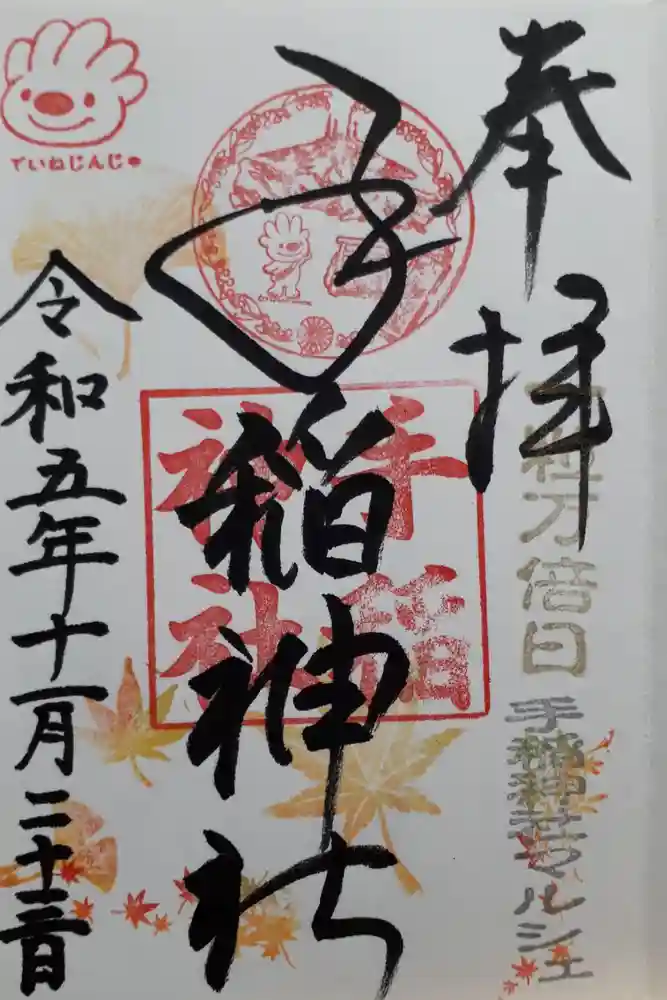 奉拝
一粒万倍日
手稲神社マルシェ
手稲神社
手稲
神社
ていねじんじゃ
令和五年十一月二十三日